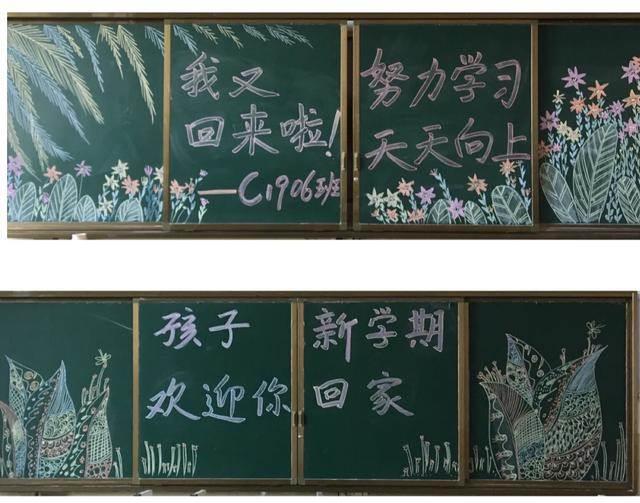 我又
回来啦!
—C1906班
努力学习
天天向上
孩子
欢迎你
新学期
回家